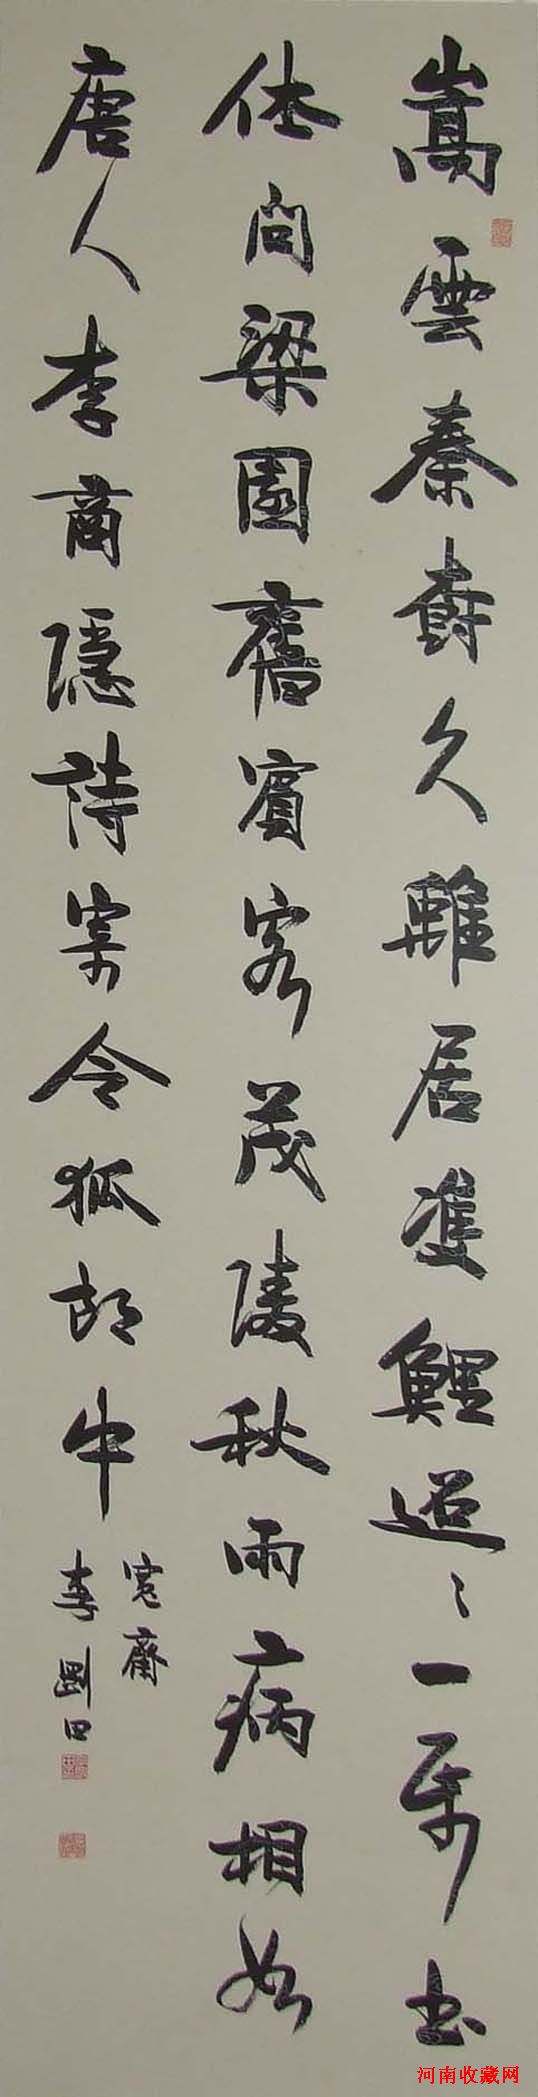 嵩雲秦樹久離居雙鯉迢〻一帋書
休問梁園舊賓客茂陵秋雨病相如
唐人李商隱詩寄令狐郎中
寬齋
李剛田
河南收藏网